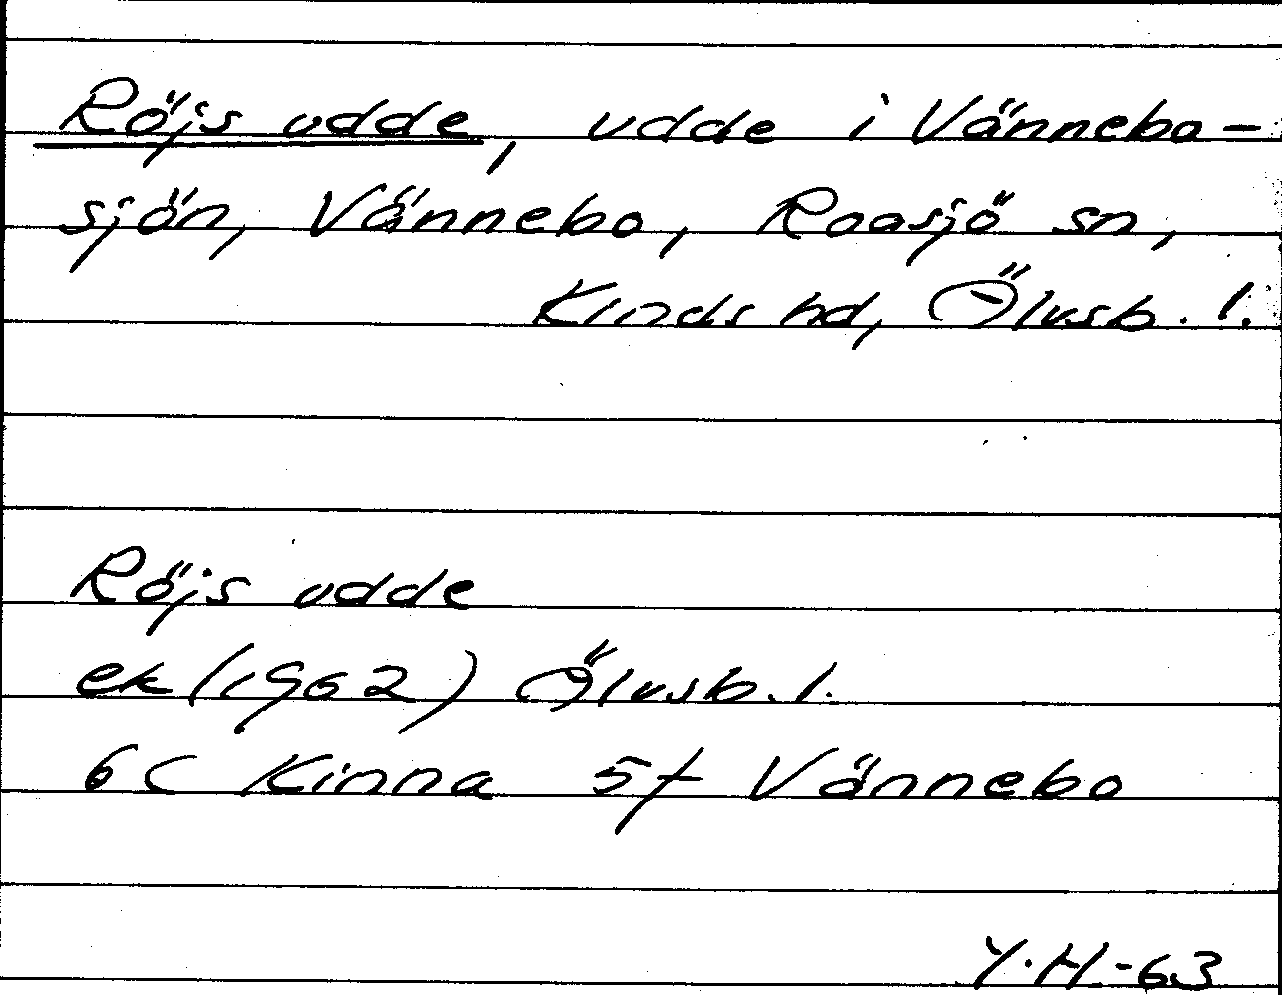 Röjs udde, udde i Vännebo-
sjön, Vännebo, Roasjö sn,
Kinds hd, Älvsb. l.
Röjs udde
ek (1962) Älvsb. l.
6C Kinna 5f Vännebo
Y.H.-63